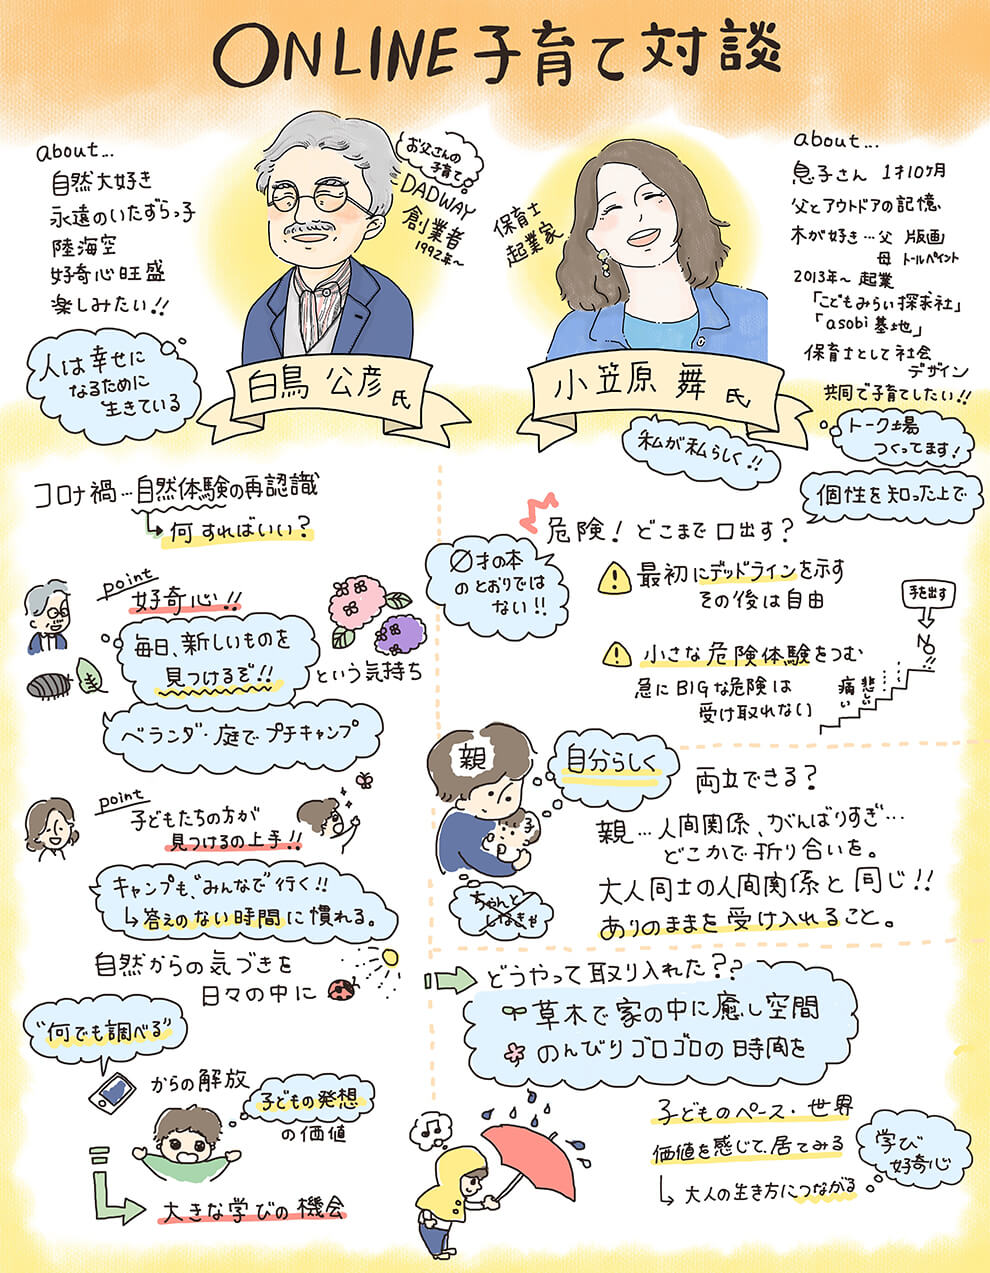 ONLINE 子育て対談
about...
自然大好き
永遠のいたずらっ子
陸海空
好奇心旺盛
楽しみたい!!
人は幸せに
なるために
生きている
お父さんの
子育て
DADWAY
創業者
1992年〜
白鳥 公彦 氏
保育士
起業家
小笠原 舞 氏
about...
息子さん 1才10ヶ月
父とアウトドアの記憶
木が好き…父 版画
母 トールペイント
2013年〜 起業
「こどもみらい探求社」
「asobi基地」
保育士として社会
デザイン
共同で子育てしたい!!
トーク場
つくってます!
私が私らしく!!
個性を知った上で
コロナ禍…自然体験の再認識
何すればいい?
point
好奇心!!
毎日、新しいものを
見つけるぞ!!
という気持ち
ベランダ・庭でプチキャンプ
point
子どもたちの方が
見つけるの上手!!
キャンプも、“みんなで”行く!!
答えのない時間に慣れる。
自然からの気づきを
日々の中に
“何でも調べる”
からの解放
子どもの発想
の価値
大きな学びの機会
危険! どこまで口出す?
0才の本
のとおりでは
ない!!
最初にデッドラインを示す
その後は自由
小さな危険体験をつむ
急にBIGな危険は
受け取れない
手を出す
NO!!
悲しい
痛い
親
子
自分らしく
両立できる?
親…人間関係、がんばりすぎ…
どこかで折り合いを。
大人同士の人間関係と同じ!!
ありのままを受け入れること。
ちゃんと
しなきゃ
どうやって取り入れた??
草木で家の中に癒し空間
のんびりゴロゴロの時間を
子どものペース・世界
価値を感じて、居てみる
大人の生き方につながる
学び
好奇心